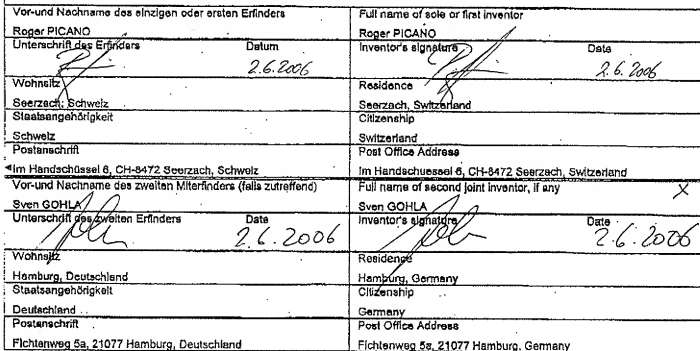 Vor-und Nachname des einzigen oder ersten Erfinders
Roger PICANO
Unterschrift des Erfinders Datum
2.6.2006
Wohnsitz
Seerzach, Schweiz
Staatsangehörigkeit
Schweiz
Postanschrift
Im Handschüssel 6, CH-8472 Seerzach, Schweiz
Vor-und Nachname des zweiten Miterfinders (falls zutreffend)
Sven GOHLA
Unterschrift des zweiten Erfinders Date
2.6.2006
Wohnsitz
Hamburg, Deutschland
Staatsangehörigkeit
Deutschland
Postanschrift
Fichtenweg 5a, 21077 Hamburg, Deutschland
Full name of sole or first inventor
Roger PICANO
Inventor's signature Date
2.6.2006
Residence
Seerzach, Switzerland
Citizenship
Switzerland
Post Office Address
Im Handschuessel 6, CH-8472 Seerzach, Switzerland
Full name of second joint inventor, if any X
Sven GOHLA
Inventor's signature Date
2.6.2006
Residence
Hamburg, Germany
Citizenship
Germany
Post Office Address
Fichtenweg 5a, 21077 Hamburg, Germany